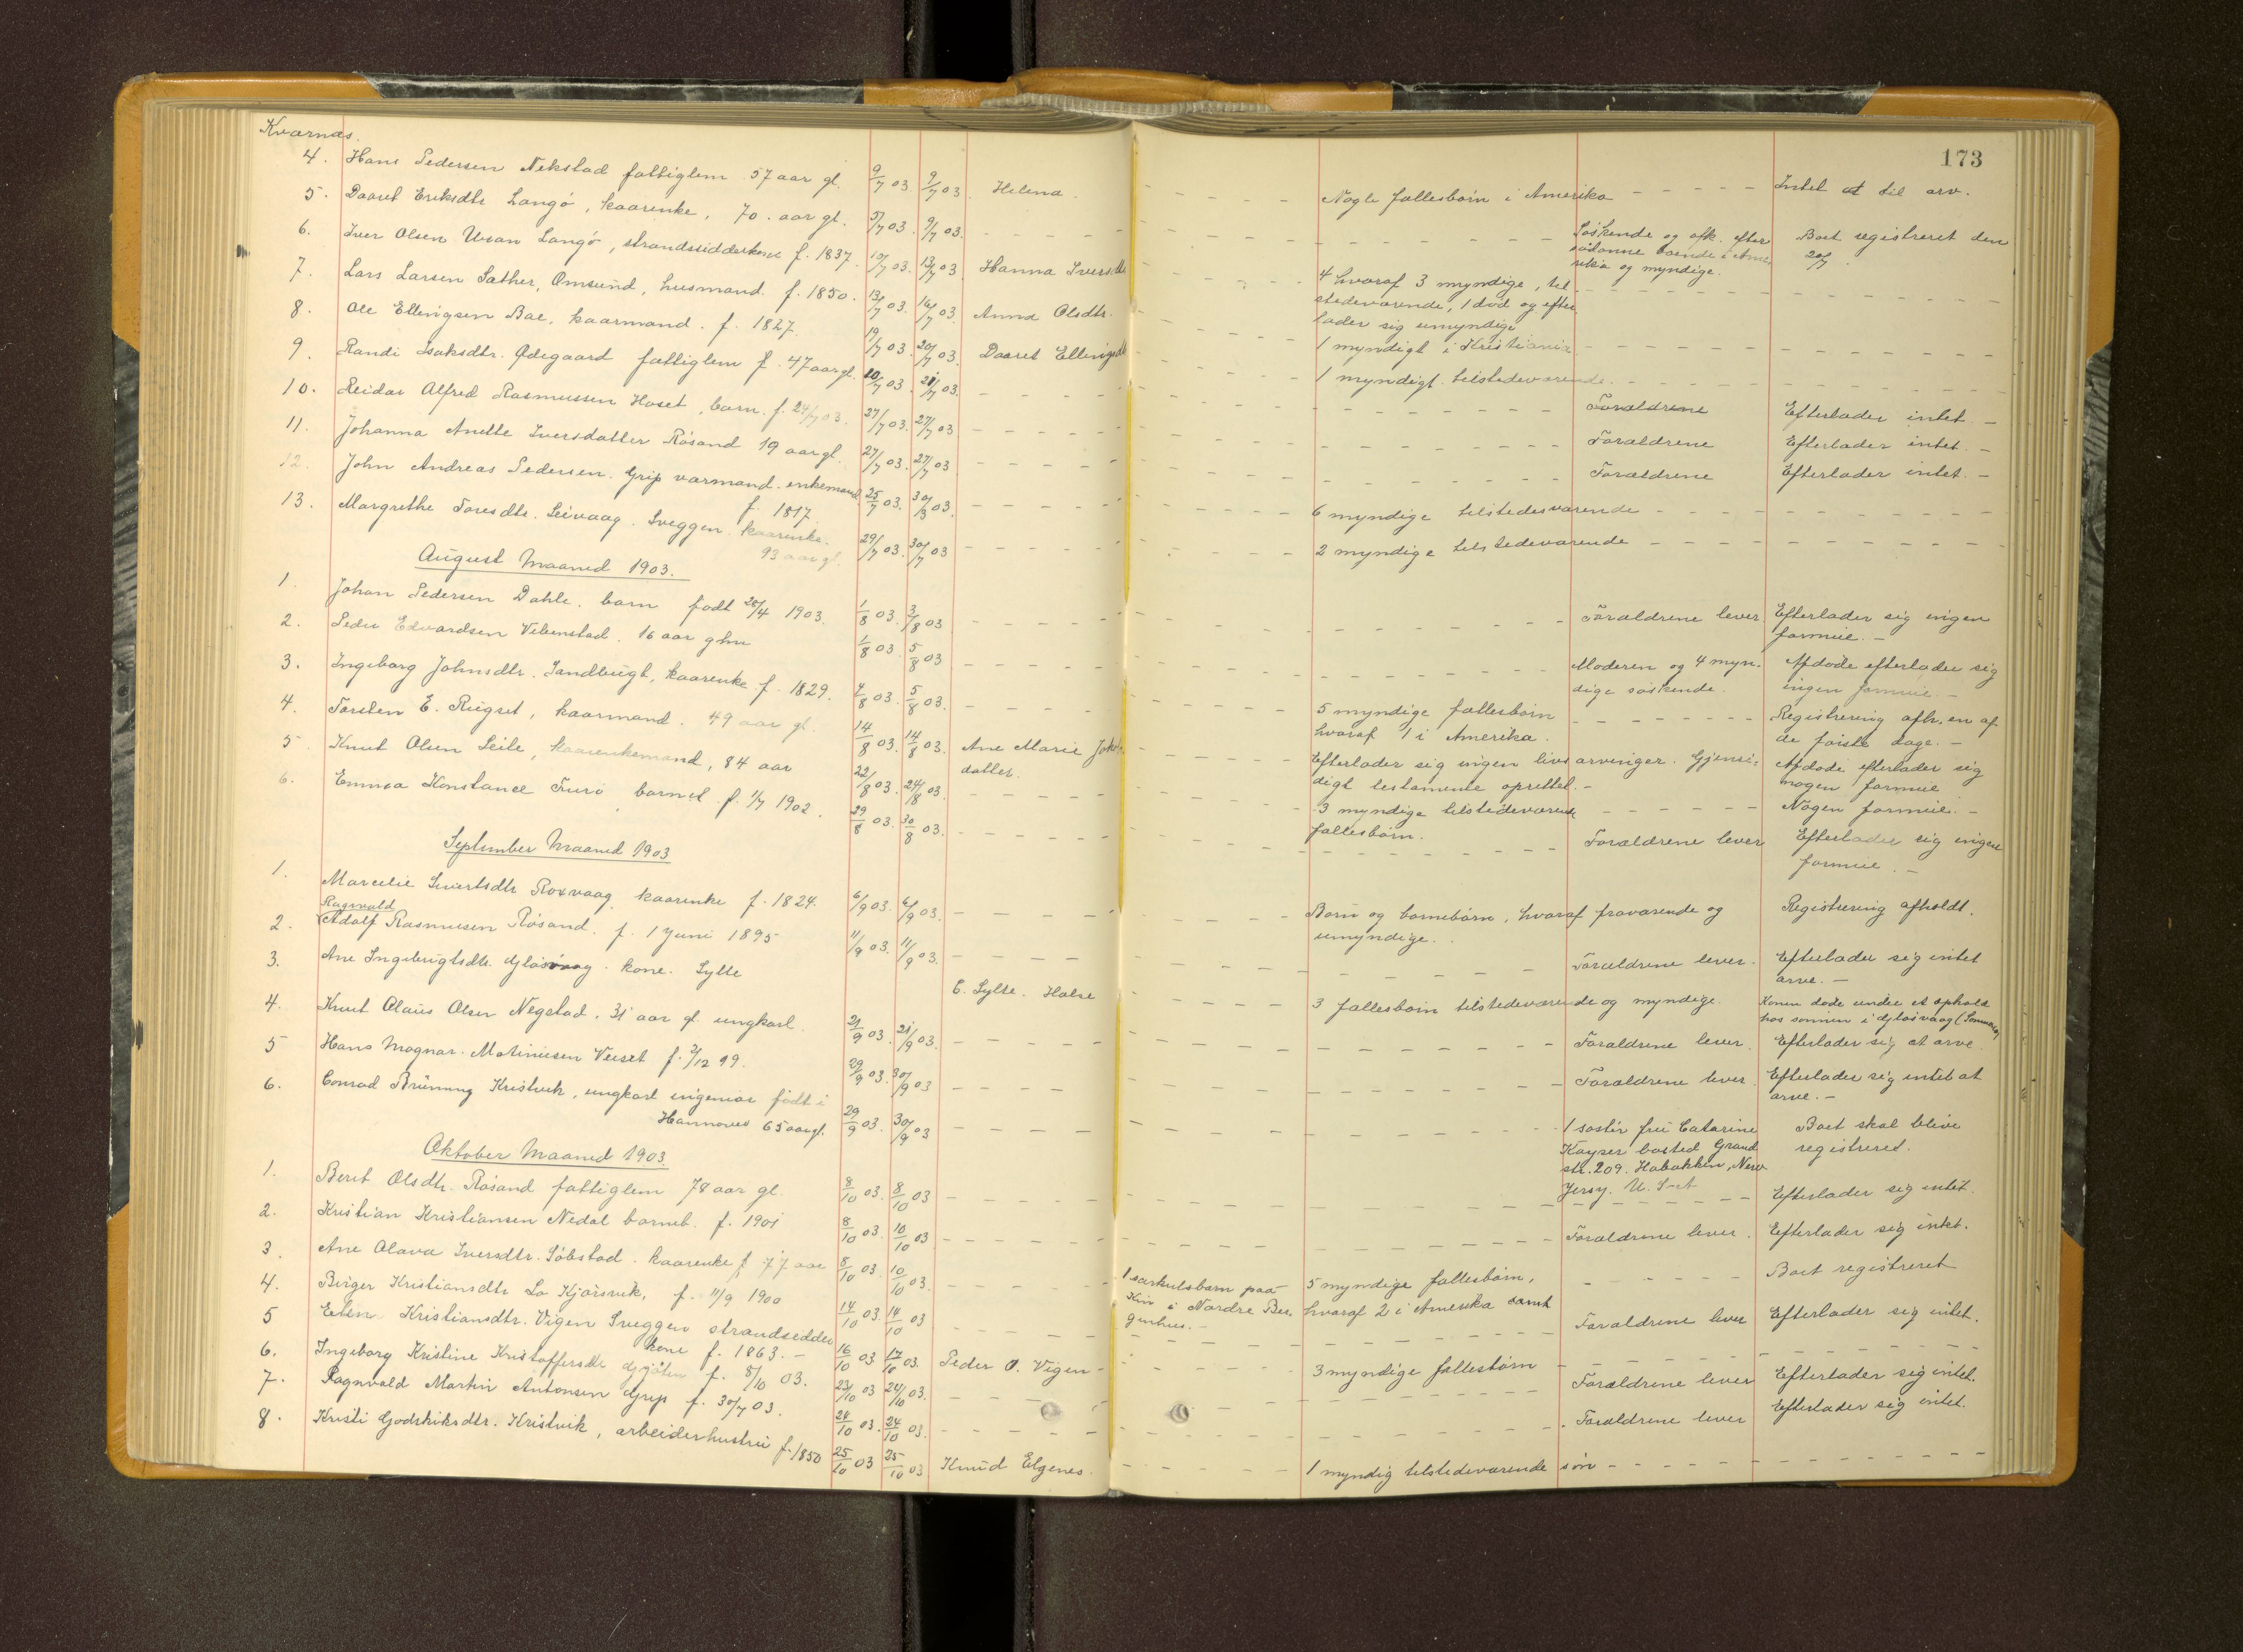 173
Kværnæs.
4. Hans Pedersen Nekstad fattiglem 57 aar gl. 9/7 03. 9/7 03. Helena Nogle fællesbörn i Amerika Intet at til arv.
5. Daaret Eriksdtr Langö, kaarenke, 70 aar gl. 5/7 03. 9/7 03. Söskende og afk. efter saadanne boende i Amerika og myndige. Boet registreret den 20/7.
6. Iver Olsen Uran Langö, strandsidder f. 1837. 10/7 03. 13/7 03 Hanna Iversdtr 4 hvoraf 3 myndige, tilstedeværende, 1 död og efterlader sig umyndige
7. Lars Larsen Sæther, Omsund, husmand. f. 1850. 13/7 03. 16/7 03. Anna Olsdtr. 1 myndigt i Kristiania
8. Ole Ellingsen Bae, kaarmand. f. 1827. 19/7 03. 20/7 03. Daaret Ellingsdtr 1 myndigt tilstedeværende.
9. Randi Isaksdtr. Ødegaard fattiglem f. 47 aar gl. 20/7 03. 21/7 03. Forældrene Efterlader intet.
10. Reidar Alfred Rasmussen Hoset, barn. f. 24/7 03. 27/7 03. 27/7 03 Forældrene Efterlader intet.
11. Johanna Anette Iversdatter Rösand 19 aar gl. 27/7 03. 27/7 03 Forældrene Efterlader intet.
12. John Andreas Pedersen Grip varmand. enkemand f. 1817 25/7 03. 30/7 03. 6 myndige tilstedesværende
13. Margrethe Toresdtr. Leivaag. Sveggen. kaarenke. 93 aar gl. 29/7 03. 30/7 03 2 myndige tilstedeværende
August Maaned 1903.
1. Johan Pedersen Dahle. barn födt 20/4 1903. 1/8 03. 3/8 03 Forældrene lever Efterlader sig ingen formue.
2. Peder Edvardsen Vebenstad. 16 aar glm 1/8 03. 5/8 03 Moderen og 4 myndige söskende. Afdöde efterlader sig ingen formue.
3. Ingeborg Johnsdtr. Sandbugt, kaarenke f. 1829. 4/8 03. 5/8 03. 5 myndige fællesbörn hvoraf 1 i Amerika. Registrering afh. en af de förste dage.
4. Torsten E. Rugset, kaarmand. 49 aar gl. 14/8 03. 14/8 03. Ane Marie Johsdatter. Efterlader sig ingen livsarvinger. Gjensidigt testamente oprettet. Afdöde efterlader sig nogen formue
5 Knut Olsen Leite, kaarenkemand, 84 aar 22/8 03. 24/8 03. 3 myndige tilstedeværende fællesbörn. Nogen formue.
6. Emma Konstance Furö barnet f. 1/7 1902. 29/8 03. 30/8 03. Forældrene lever Efterlader sig ingen formue.
September Maaned 1903
1. Marselie Sivertsdtr Roxvaag kaarenke f. 1824. 6/9 03. 6/9 03. Börn og börnebörn, hvoraf fraværende og umyndige. Registrering afholdt.
2. Ragnvald Adolf Rasmussen Rösand. f. 1 Juni 1895 11/9 03. 11/9 03. Forældrene lever. Efterlader sig intet arve.
3. Ane Ingebrigtsdtr. Gjösvaag. kone. Sylte E. Sylte. Halse 3 fællesbörn tilstedeværende og myndige. Konen döde under et ophold hos sönnen i Gjösvaag
4. Knut Olaus Olsen Negstad. 31 aar gl ungkarl. 21/9 03. 21/9 03. Forældrene lever. Efterlader sig at arve.
5 Hans Magnar Matinusen Veiset f. 2/12 99. 29/9 03. 30/9 03 Forældrene lever. Efterlader sig intet at arve.
6. Conrad Brünning Kristvik, ungkarl ingeniör födt i Hannover 65 aar gl. 29/9 03. 30/9 03 1 söster fru Catarine Kayser bosted Grand str. 209. Habokken, New Jersy. U. S. A Boet skal blive registreret.
Oktober Maaned 1903.
1. Berit Olsdtr. Rösand fattiglem 78 aar gl. 8/10 03. 8/10 03 Efterlader sig intet.
2. Kristian Kristiansen Nedal barneb. f. 1901 8/10 03. 10/10 03 Forældrene lever. Efterlader sig intet.
3. Ane Olava Iversdtr. Söbstad. kaarenke f 77 aar 8/10 03. 10/10 03. 1 særkulsbarn paa Kin i Nordre Bergenhus. 5 myndige fællesbörn, hvoraf 2 i Amerika samt Boet registreret
4. Birger Kristiansdtr Lo Kjörsvik, f. 11/9 1900 14/10 03. 14/10 03 Forældrene lever Efterlader sig intet.
5 Elen Kristiansdtr. Vigen Sveggen strandsidderkone f. 1863. 16/10 03. 17/10 03. Peder O. Vigen 3 myndige fællesbörn
6. Ingeborg Kristine Kristoffersdtr f. 8/10 03. 23/10 03 24/10 03. Forældrene lever Efterlader sig intet.
7. Ragnvald Martin Antonsen Grip f. 30/7 03. 24/10 03. 24/10 03. Forældrene lever Efterlader sig intet.
8. Kristi Godskiksdtr. Kristvik, arbeiderhustru f. 1850 25/10 03 25/10 03 Knud Elgenes. 1 myndig tilstedeværende sön